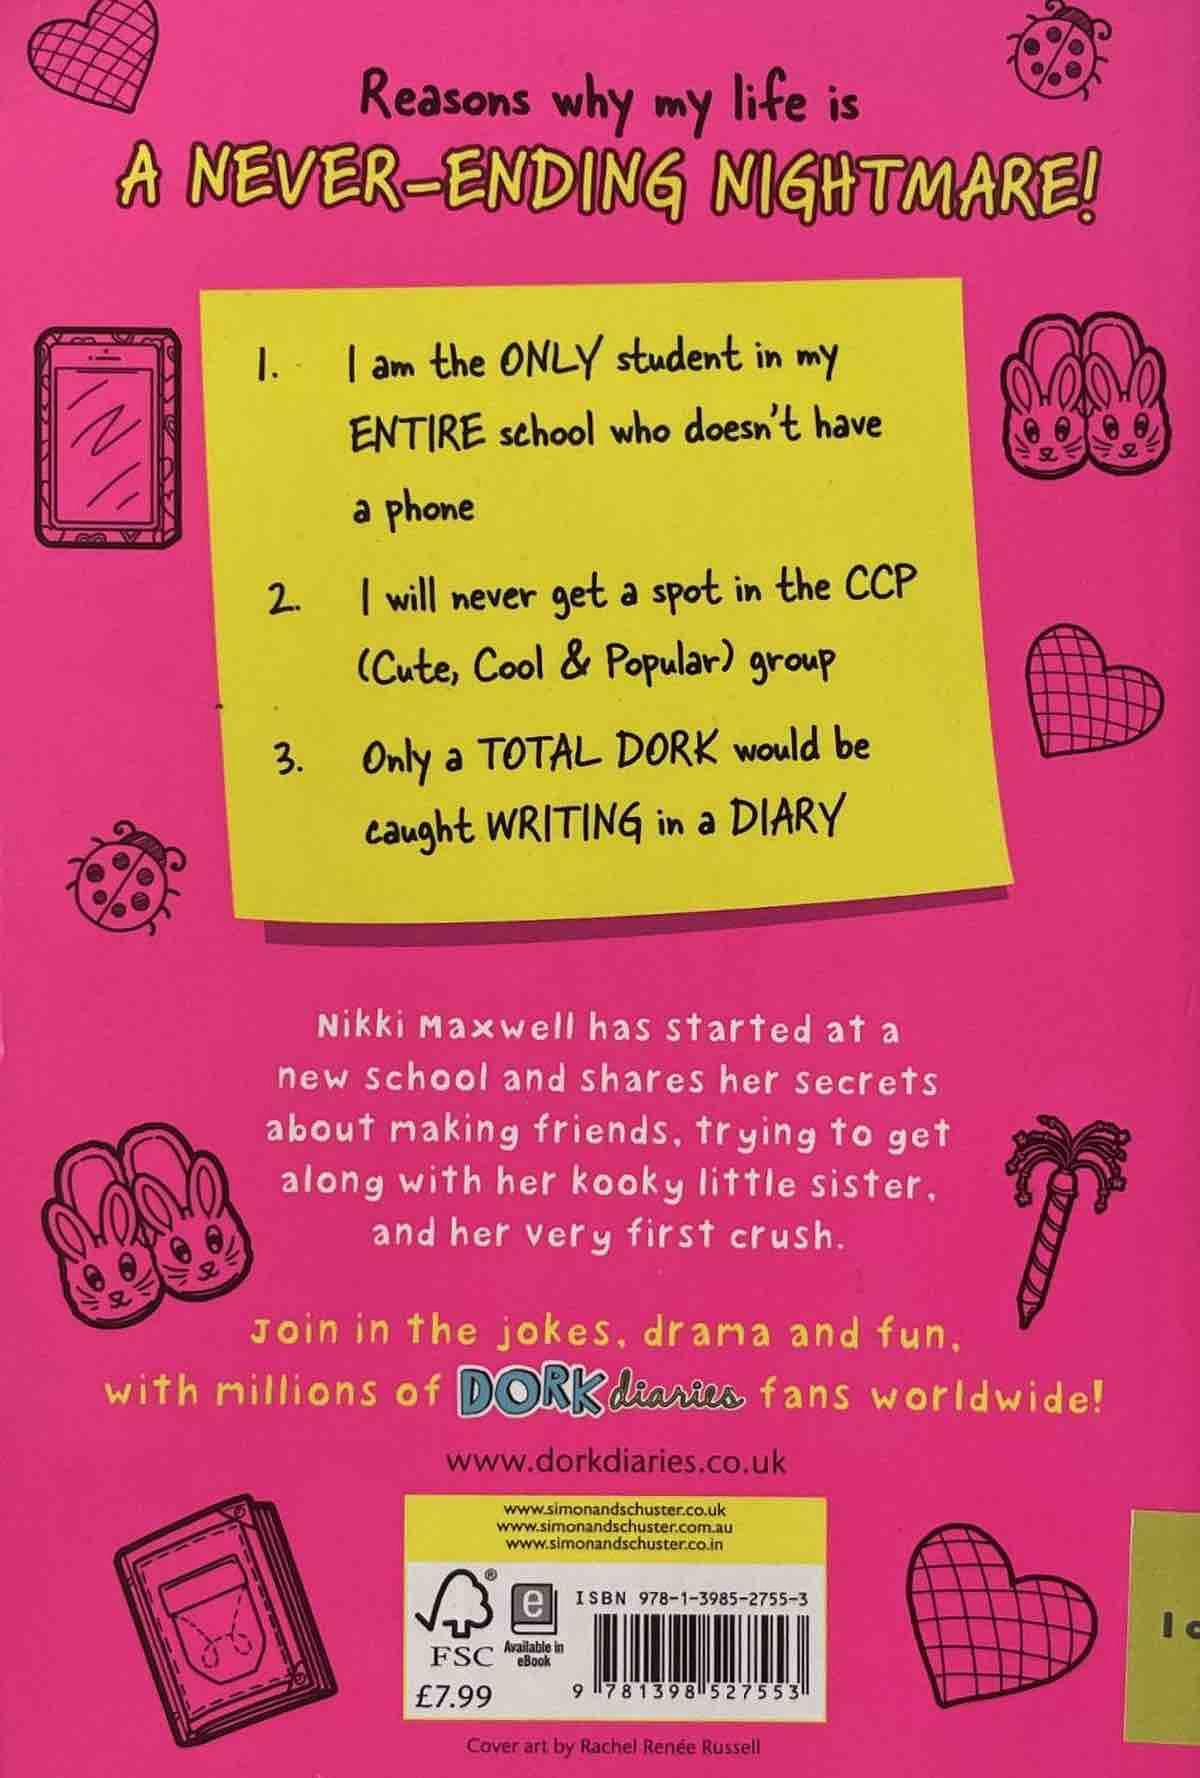 Reasons why my life is
A NEVER-ENDING NIGHTMARE!
1. I am the ONLY student in my
ENTIRE school who doesn't have
a phone
2. I will never get a spot in the CCP
(Cute, Cool & Popular) group
3. Only a TOTAL DORK would be
caught WRITING in a DIARY
Nikki Maxwell has started at a
new school and shares her secrets
about making friends, trying to get
along with her kooky little sister,
and her very first crush.
Join in the jokes, drama and fun,
with millions of DORK diaries fans worldwide!
www.dorkdiaries.co.uk
www.simonandschuster.co.uk
www.simonandschuster.com.au
www.simonandschuster.co.in
FSC
®
£7.99
e
Available in
eBook
ISBN 978-1-3985-2755-3
9 781398 527553
Cover art by Rachel Renée Russell